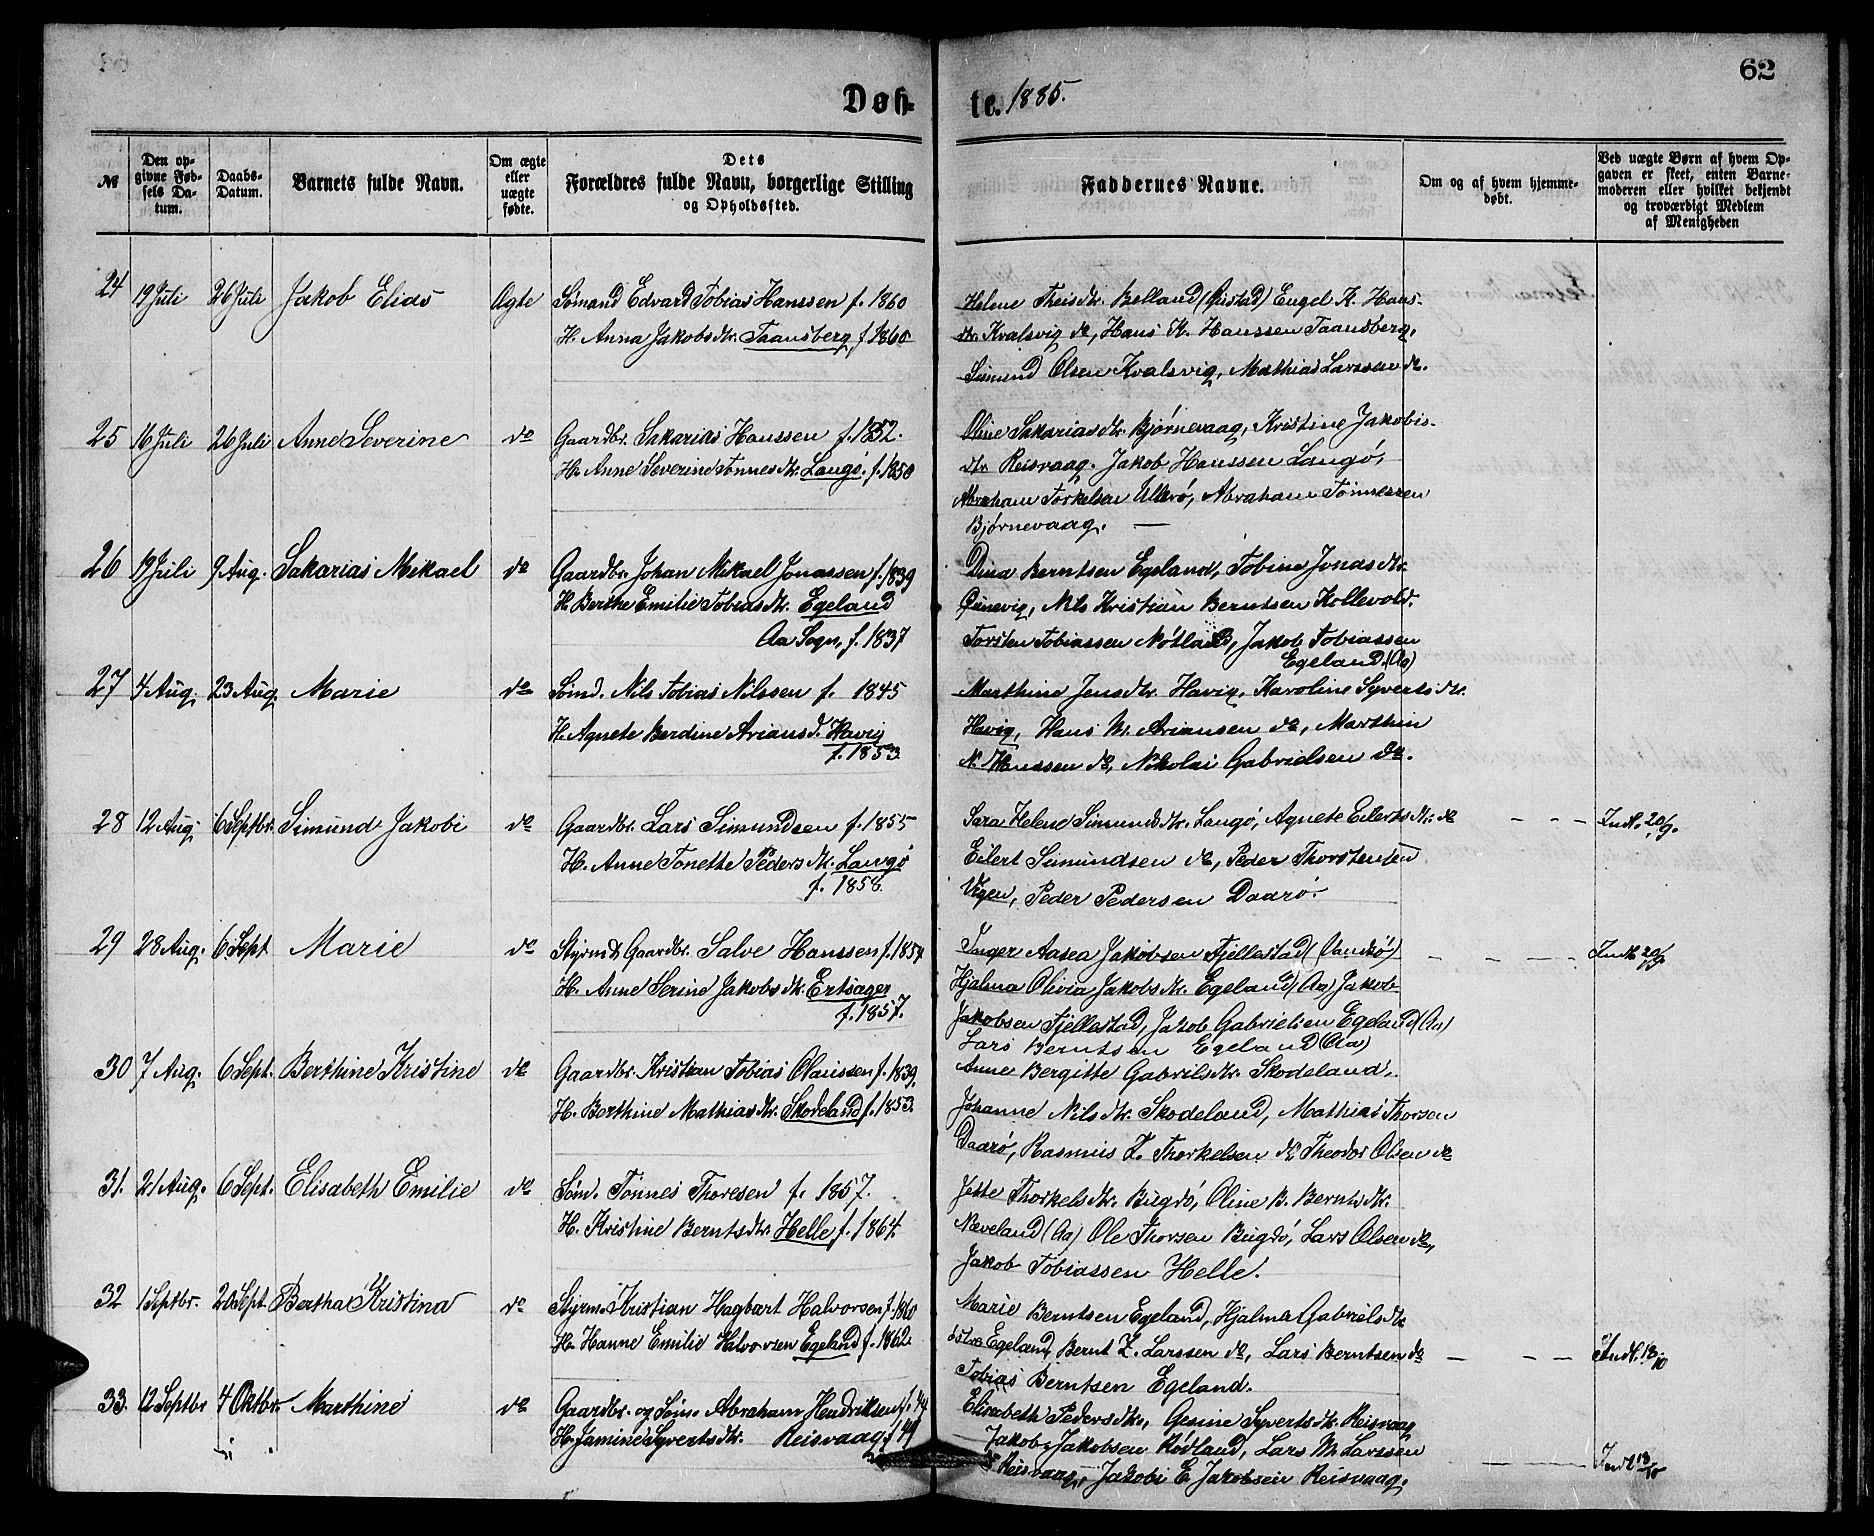 62
Døb-te. 1885.
№
Den opgivne Fødsels Datum.
Daabs-Datum.
Barnets fulde Navn.
Om ægte eller uægte fødte.
Dets Forældres fulde Navn, borgerlige Stilling og Opholdssted.
Faddernes Navne.
Om og af hvem hjemmedøbt.
Ved uægte Børn af hvem Opgaven er skeet, enten Barnemoderen eller hvilket bekjendt og troværdigt Medlem af Menigheden
24 19 Juli 26 Juli Jakob Elias Ægte Sömand Edvard Tobias Hanssen f. 1860
H. Anna Jakobsdtr. Taansberg f 1860
Helene Theisdtr. Belland () Engel K. Hans-
dtr. Kvalsvig do, Hans K. Hanssen Taandberg,
Simund Olsen Kvalsvig, Mathias Larssen do.
25 16 Juli 26 Juli Anne Severine do Gaardbr. Sakarias Hanssen f. 1852.
H. Anne Severine Tönnesdtr. Langö. f. 1850
Oline Sakariasdtr. Bjørnevaag, Kristine Jakobs-
dtr Reisvaag. Jakob Hanssen Langö,
Abraham Torkelsen Ullerö, Abraham Tönnessen
Bjørnevaag. —
26 19 Juli 9 Aug. Sakarias Mikael do Gaardbr. Johan Mikael Jonassen f. 1839
H. Berthe Emilie Tobiasdtr. Egeland
Aa Sogn, f. 1837
Dina Berntsen Egeland, Tobine Jonasdtr.
Nils Kristian Berntsen Kollevold.
Torsten Tobiassen Nötland, Jakob Tobiassen
Egeland (Aa)
27 4 Aug. 23 Aug Marie do Sömd. Nils Tobias Nilssen f. 1845
H. Agnete Berdine Ariansd. Havig
f. 1853.
Marthine Jensdtr. Havig, Karoline Syvertsdtr.
Havig, Hans M. Ariansen do, Marthin
N. Hanssen do, Nikolai Gabrielsen do.
28 12 Aug. 6 Septbr. Simund Jakobi do Gaardbr. Lars Simundsen f. 1855
H. Anne Tonette Pedersdtr. Langö
f. 1858.
Sara Helene Simundsdtr. Langö, Agnete Eilertsdtr. do — — — Indl. 20/9.
Eilert Simundsen do, Peder Thorstensen
Vigen, Peder Pedersen Daarö.
29 28 Aug. 6 Sept. Marie do Styrmd & Gaardbr. Salve Hanssen f. 1854
H. Anne Serine Jakobsdtr. Ertsager
f. 1857.
Inger Aasea Jakobsen Fjellestad — — — — Indl. 20/9
Hjalma Olivia Jakobsdtr. Egeland (Aa) Jakob
Jakobsen Fjellestad, Jakob Gabrielsen Egeland (Aa)
Lars Berntsen Egeland (Aa)
30 7 Aug. 6 Sept. Berthine Kristine do Gaardbr. Kristian Tobias Olaussen f. 1839.
H. Berthine Mathiasdtr. Skodeland f. 1853.
Anne Bergitte Gabrilsdtr. Skodeland,
Johanne Nilsdtr. Skodeland, Mathias Thorsen
Daarö, Rasmus Z. Thorkelsen do Theodor Olsen do
31. 21 Aug. 6 Sept. Elisabeth Emilie do Söm. Tönnes Thoresen f. 1857.
H. Kristine Berntsdtr. Helle f. 1864.
Jette Thorkelsdtr. Bugdö, Oline B. Berntsdtr.
Næveland (Aa) Ole Thorsen Bugdö, Lars Olsen do,
Jakob Tobiassen Helle.
32 1 Septbr. 20 Sept. Bertha Kristina do Styrmd Kristian Hagbart Halvorsen f. 1860
H. Hanne Emilie Halvorsen Egeland f. 1862.
Marie Berntsen Egeland, Hjalma Gabrielsdtr
Egeland, Bernt Z. Larssen do, Lars Berntsen do — — — Indl. 18/10
Tobias Berntsen Egeland.
33. 12 Septbr 4 Oktbr. Marthine do Gaardbr. og Söm. Abraham Hendriksen f. 44
H. Jamine Syvertsdtr. Reisvaag f 49
Elisabeth Pedersdtr, Gesine Syvertsdtr. Reisvaag
Jakob Jakobsen Rödland, Lars M. Larssen
Reisvaag, Jakobi E Jakobsen Reisvaag. — — — Indl 18/10